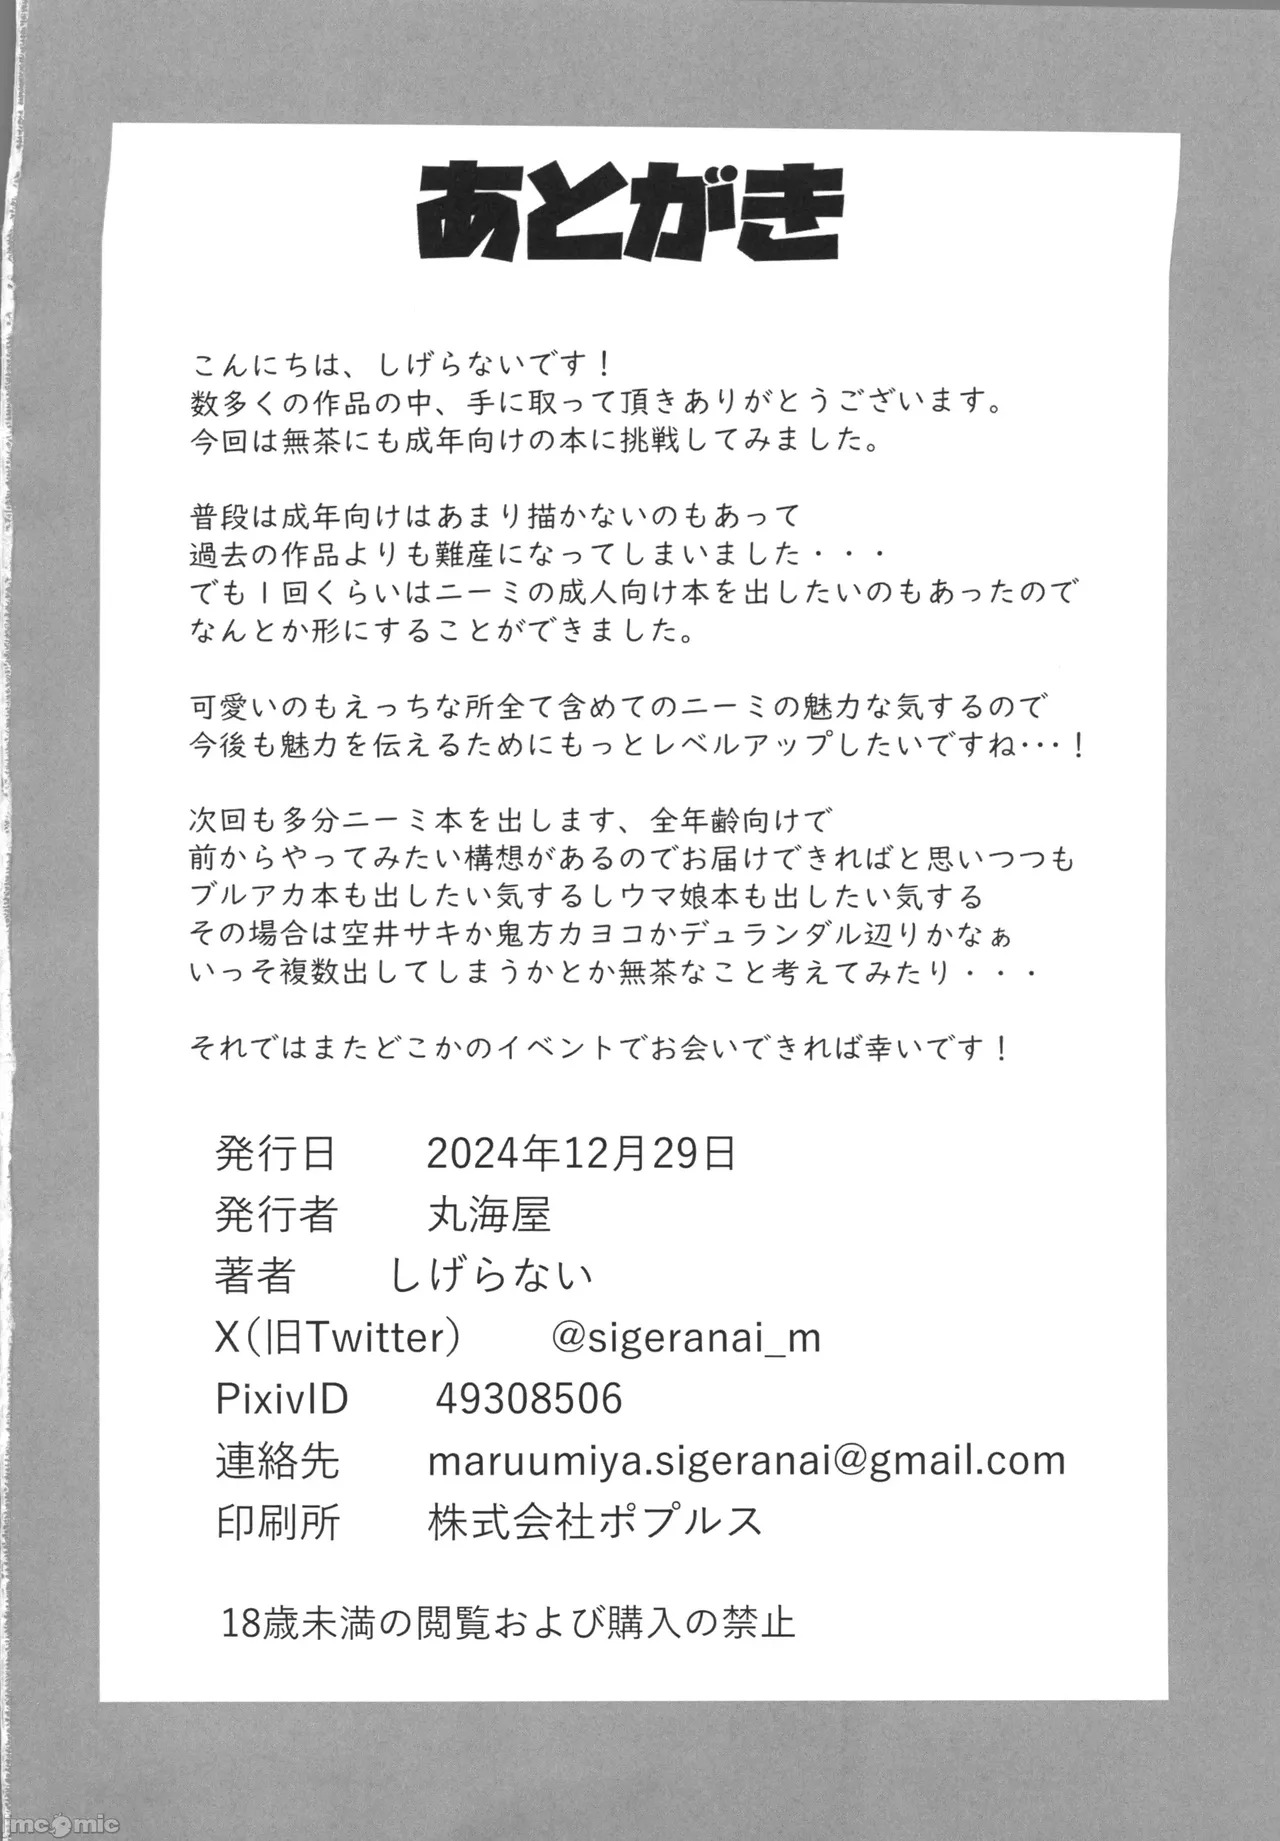 あとがき
こんにちは、しげらないです！
数多くの作品の中、手に取って頂きありがとうございます。
今回は無茶にも成年向けの本に挑戦してみました。
普段は成年向けはあまり描かないのもあって
過去の作品よりも難産になってしまいました・・・
でも1回くらいはニーミの成人向け本を出したいのもあったので
なんとか形にすることができました。
可愛いのもえっちな所全て含めてのニーミの魅力な気するので
今後も魅力を伝えるためにもっとレベルアップしたいですね・・・！
次回も多分ニーミ本を出します、全年齢向けで
前からやってみたい構想があるのでお届けできればと思いつつも
ブルアカ本も出したい気するしウマ娘本も出したい気する
その場合は空井サキか鬼方カヨコかデュランダル辺りかなぁ
いっそ複数出してしまうかとか無茶なこと考えてみたり・・・
それではまたどこかのイベントでお会いできれば幸いです！
発行日 2024年12月29日
発行者 丸海屋
著者 しげらない
X(旧Twitter) @sigeranai_m
PixivID 49308506
連絡先 maruumiya.sigeranai@gmail.com
印刷所 株式会社ポプルス
18歳未満の閲覧および購入の禁止
mcomic